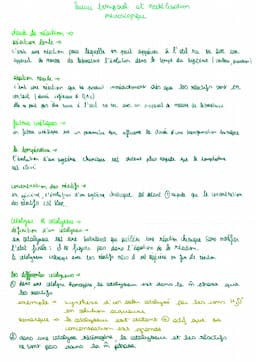 Suivi temporel et modélisation
macroscopique
durée de réaction →
réaction lente →
c'est une réaction pour laquelle on peut apprécier à l'œil nu ou avec un
appareil de mesure de laboratoire l'évolution dans le temps du système (couleur, pression)
réaction rapide →
c'est une réaction qui se produit instantanément dès que les réactifs sont en
contact (durée inférieure à 0,1s)
elle ne peut pas être suivie à l'œil nu ou avec un appareil de mesure de laboratoire
facteurs cinétiques →
un facteur cinétique est un paramètre qui influence la durée d'une transformation chimique
la température →
l'évolution d'un système chimique est d'autant plus rapide que la température
est élevée
concentration des réactifs →
en général, l'évolution d'un système chimique est d'autant rapide que la concentration
des réactifs est élevée.
catalyse et catalyseur →
définition d'un catalyseur →
un catalyseur est une substance qui accélère une réaction chimique sans modifier
l'état final il ne figure pas dans l'équation de la réaction.
le catalyseur réagit avec les réactifs mais il est régénéré en fin de réaction
Les différentes catalyses →
① dans une catalyse homogène, le catalyseur est dans la m̂ phase que
les réactifs
exemple → synthèse d'un ester catalysée par les ions H₃O⁺
en solution aqueuse
remarque → le catalyseur est d'autant actif que sa
concentration est grande
② dans une catalyse hétérogène, le catalyseur et les réactifs
ne sont pas dans la m̂ phase